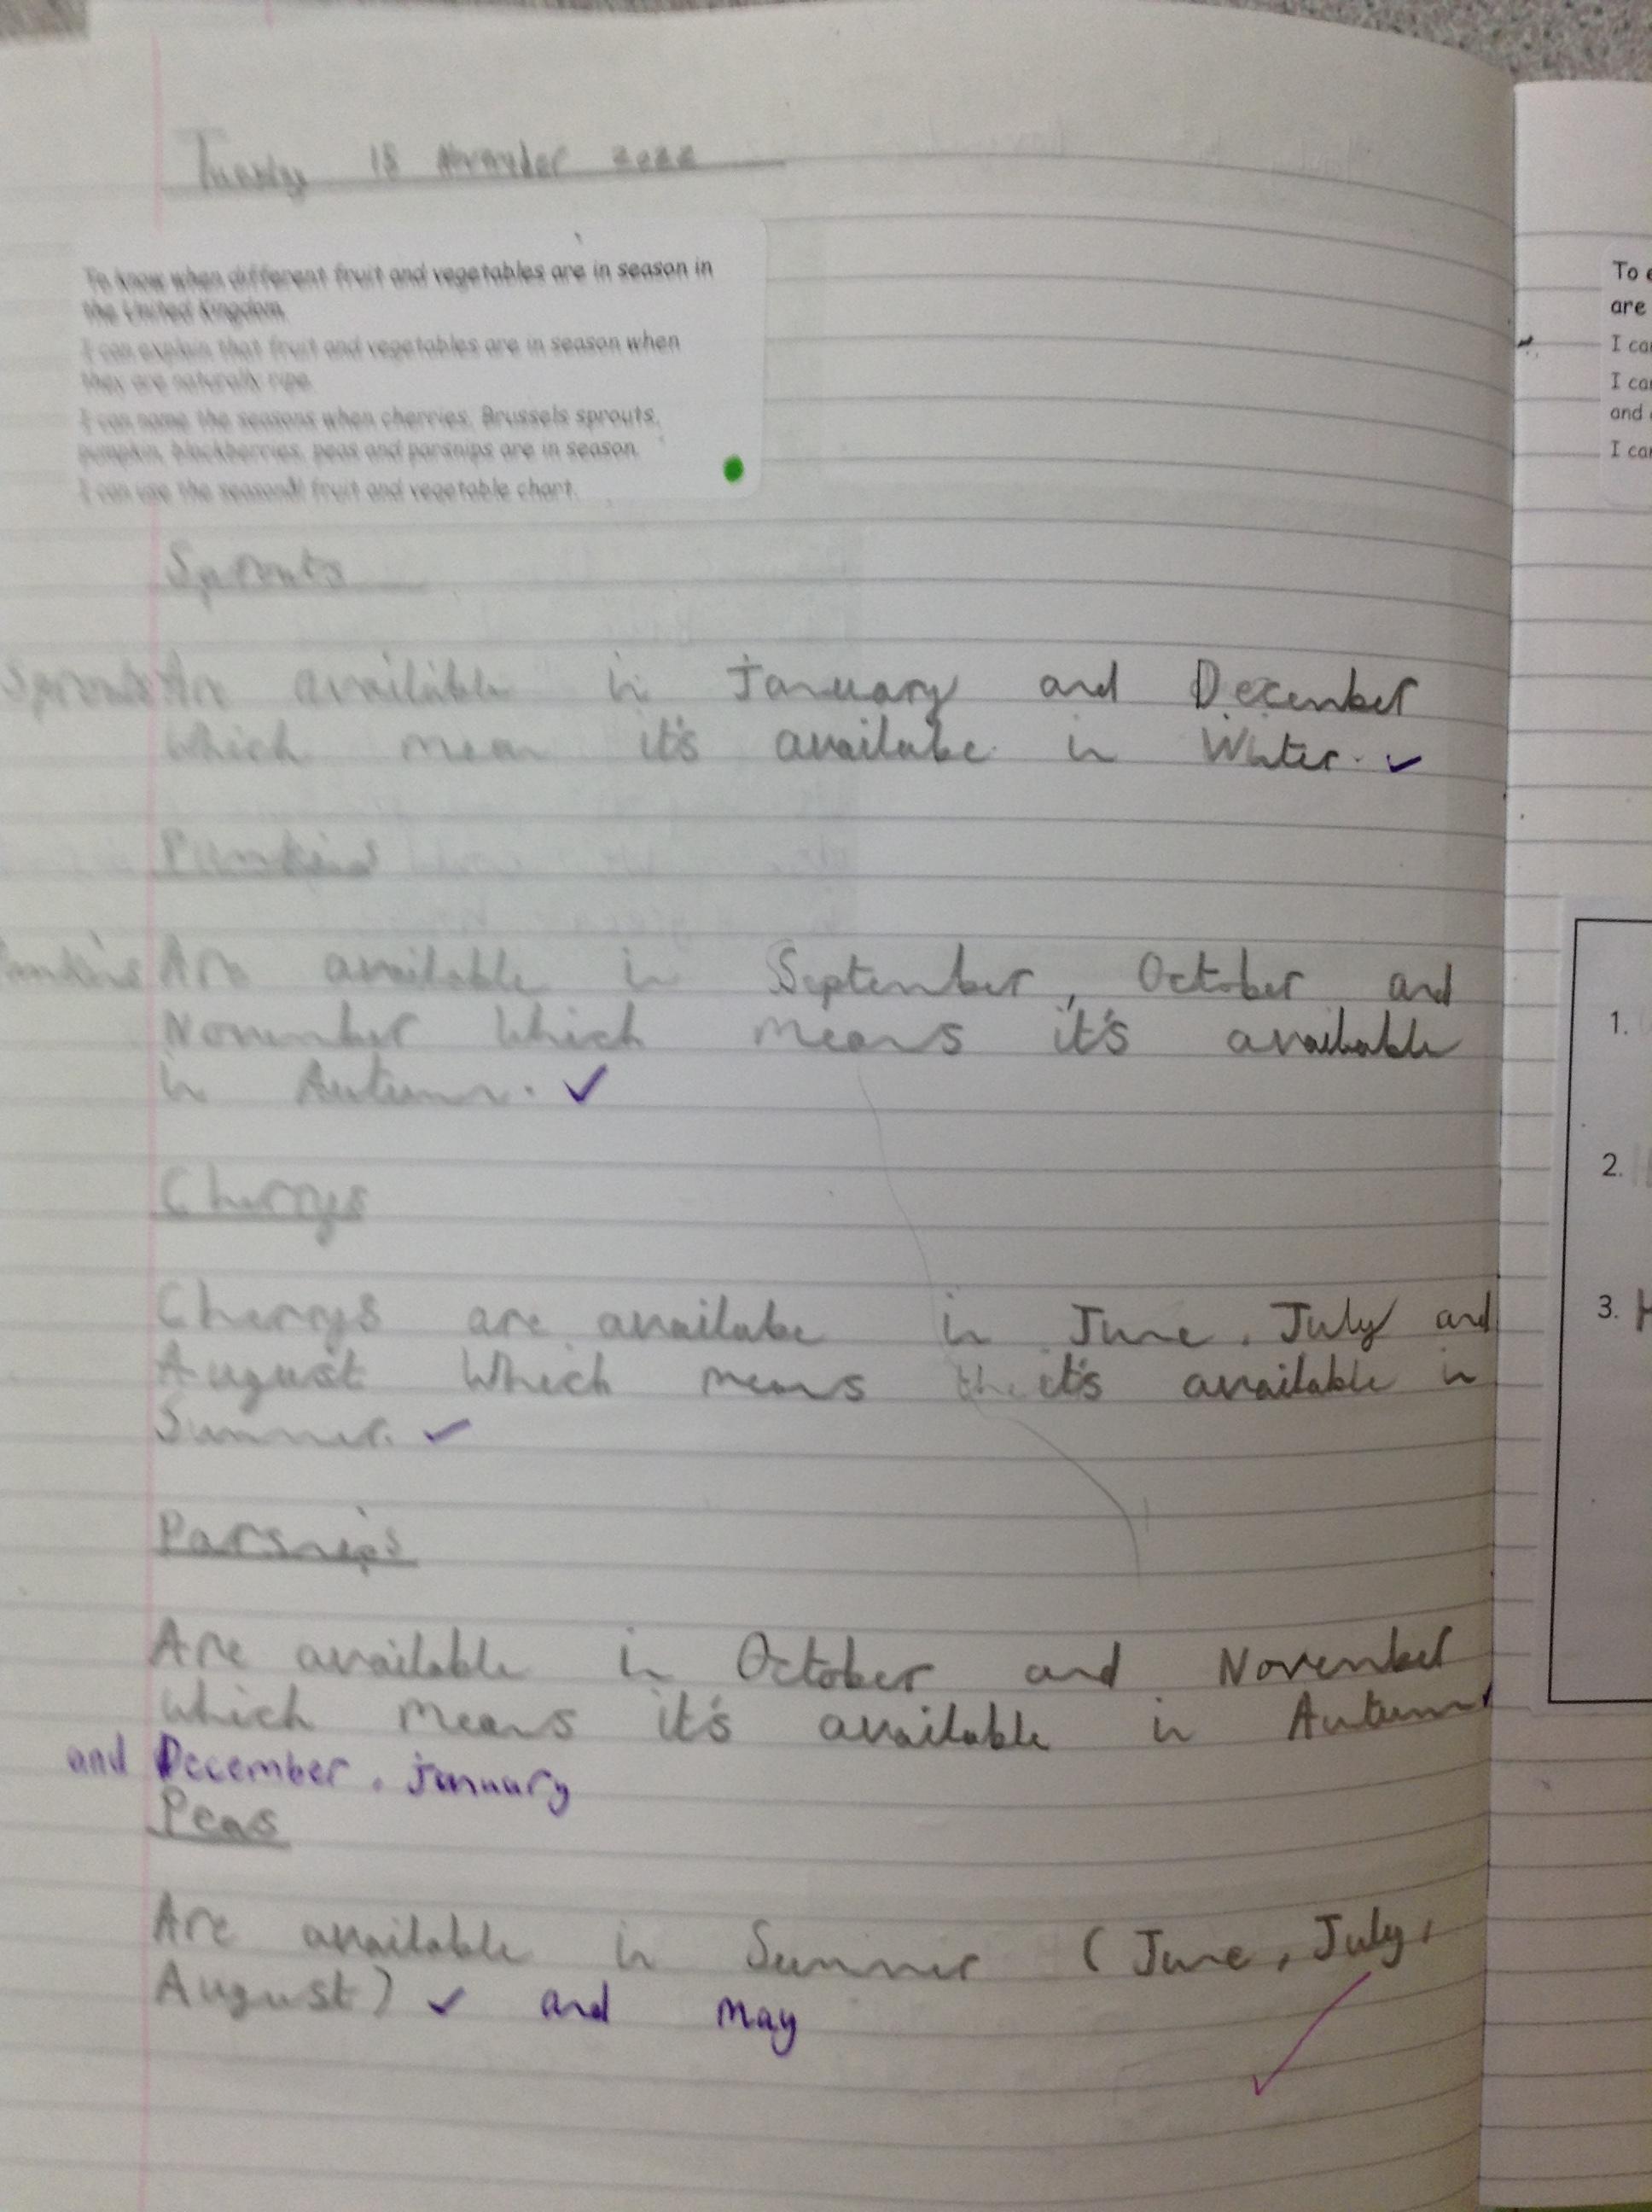 Tuesday 18 November 2022
To know when different fruit and vegetables are in season in
the United Kingdom.
I can explain that fruit and vegetables are in season when
they are naturally ripe.
I can name the seasons when cherries, Brussels sprouts,
pumpkin, blackberries, peas and parsnips are in season.
I can use the seasonal fruit and vegetable chart.
Sprouts
Sprouts Are available in January and December
which mean it's availabe in Winter.
Pumkins
Pumkins Are available in September, October and
November which means it's available
in Autumn.
Cherrys
Cherrys are availabe in June, July and
August which means it's available in
Summer.
Parsnips
Are available in October and November
which means it's available in Autumn
and December, january
Peas
Are available in Summer (June, July,
August) and may
To
are
I
I
and
I
1.
2.
3.